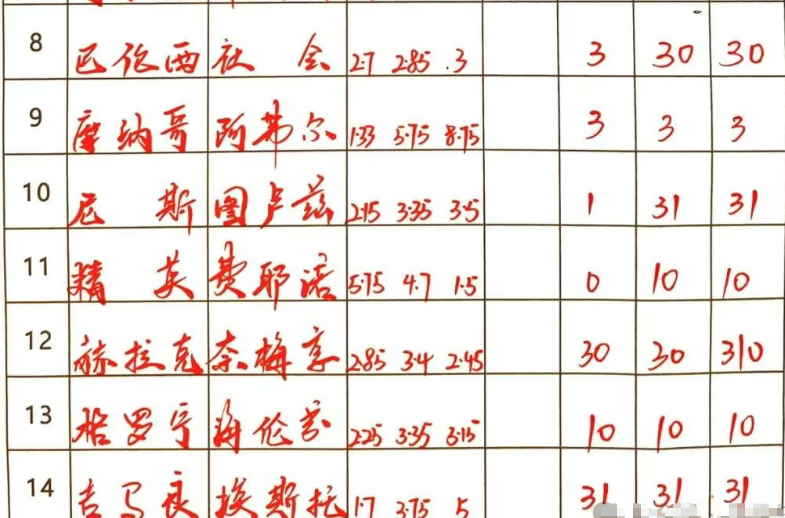 8 巴伦西 社会 2.7 2.85 .3 3 30 30
9 摩纳哥 阿弗尔 1.33 5.75 8.75 3 3 3
10 尼斯 图卢兹 2.15 3.35 3.5 1 31 31
11 精英 费耶诺 5.75 4.7 1.5 0 10 10
12 赫拉克 奈梅亨 2.85 3.4 2.45 30 30 310
13 格罗宁 海伦芬 2.25 3.35 3.15 10 10 10
14 吉马良 埃斯托 1.7 3.75 5 31 31 31